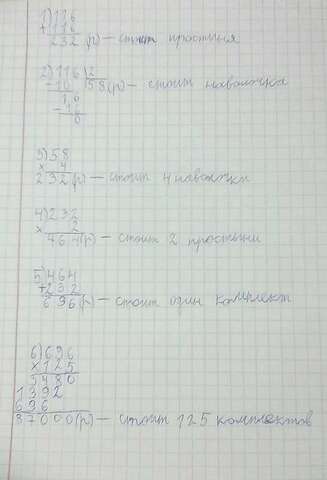 1) 116
+ 116
232 (р) – стоит простыня
2) 116 | 2
- 10 | 58 (р) – стоит наволочка
16
- 16
0
3) 58
x 4
232 (р) – стоит 4 наволочки
4) 232
x 2
464 (р) – стоит 2 простыни
5) 464
+ 232
696 (р) – стоит один комплект
6) 696
x 125
3480
1392
696
87000 (р) – стоит 125 комплектов